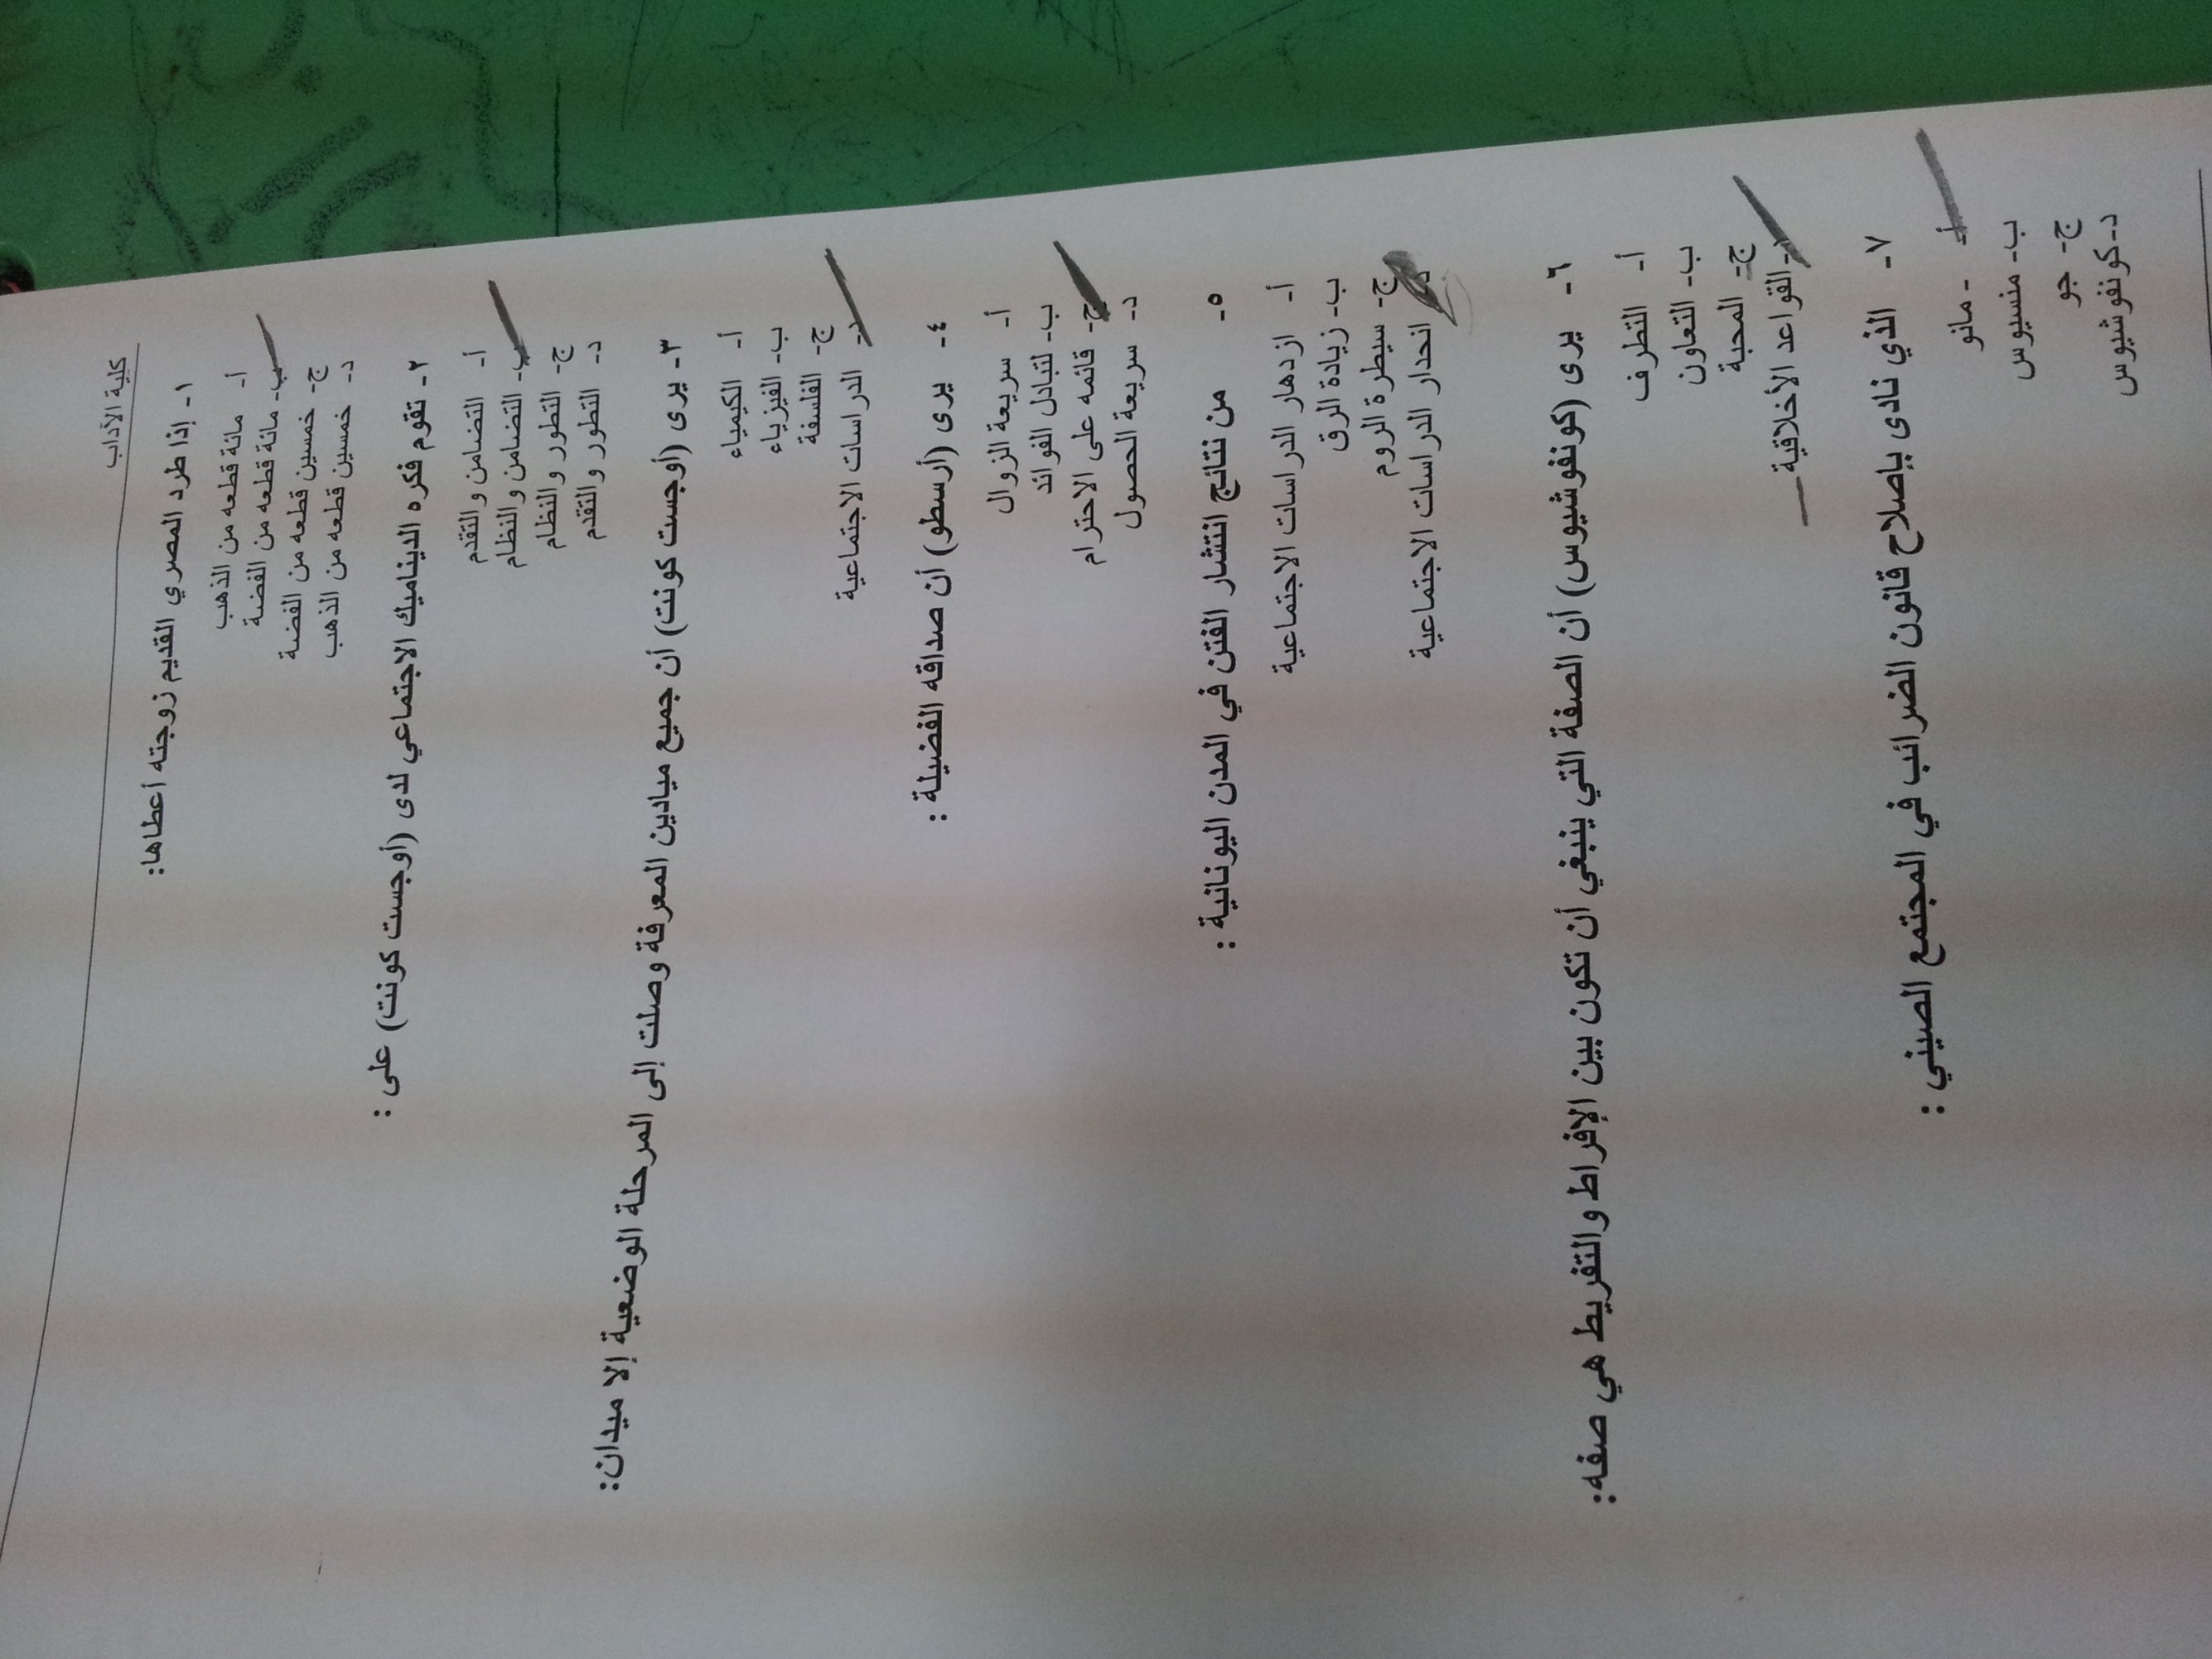 كلية الآداب
١- إذا طرد المصري القديم زوجته أعطاها:
أ- مائة قطعه من الذهب
ب- مائة قطعه من الفضة
ج- خمسين قطعه من الفضة
د- خمسين قطعه من الذهب
٢- تقوم فكره الديناميك الاجتماعي لدى (أوجست كونت) على :
أ- التضامن والتقدم
ب- التضامن والنظام
ج- التطور والنظام
د- التطور والتقدم
٣- يرى (أوجست كونت) أن جميع ميادين المعرفة وصلت إلى المرحلة الوضعية إلا ميدان:
أ- الكيمياء
ب- الفيزياء
ج- الفلسفة
د- الدراسات الاجتماعية
٤- يرى (أرسطو) أن صداقه الفضيلة :
أ- سريعة الزوال
ب- لتبادل الفوائد
ج- قائمه على الاحترام
د- سريعة الحصول
٥- من نتائج انتشار الفتن في المدن اليونانية :
أ- ازدهار الدراسات الاجتماعية
ب- زيادة الرق
ج- سيطرة الروم
د- انحدار الدراسات الاجتماعية
٦- يرى (كونفوشيوس) أن الصفة التي ينبغي أن تكون بين الإفراط والتفريط هي صفه:
أ- التطرف
ب- التعاون
ج- المحبة
د- القواعد الأخلاقية
٧- الذي نادى بإصلاح قانون الضرائب في المجتمع الصيني :
أ- - مانو
ب- منسيوس
ج- جو
د-كونفوشيوس